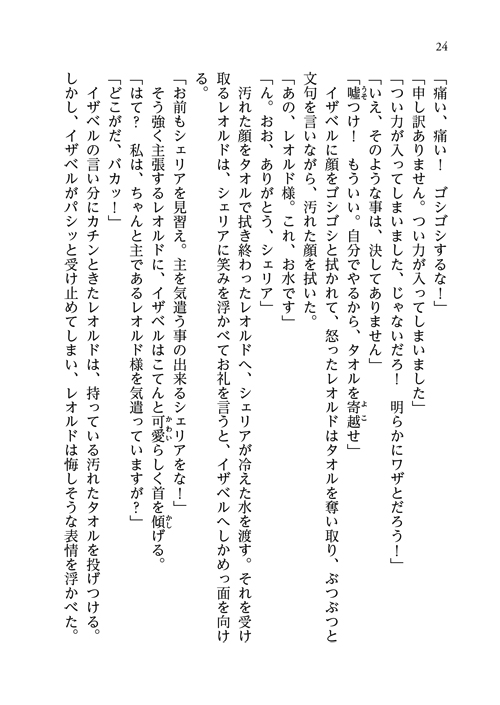 24
「痛い、痛い！　ゴシゴシするな！」
「申し訳ありません。つい力が入ってしまいました」
「つい力が入ってしまいました、じゃないだろ！　明らかにワザとだろう！」
「いえ、そのような事は、決してありません」
「嘘つけ！　もういい。自分でやるから、タオルを寄越せ」
　イザベルに顔をゴシゴシと拭かれて、怒ったレオルドはタオルを奪い取り、ぶつぶつと
文句を言いながら、汚れた顔を拭いた。
「あの、レオルド様。これ、お水です」
「ん。おお、ありがとう、シェリア」
　汚れた顔をタオルで拭き終わったレオルドへ、シェリアが冷えた水を渡す。それを受け
取るレオルドは、シェリアに笑みを浮かべてお礼を言うと、イザベルへしかめっ面を向け
る。
「お前もシェリアを見習え。主を気遣う事の出来るシェリアをな！」
　そう強く主張するレオルドに、イザベルはこてんと可愛らしく首を傾げる。
「はて？　私は、ちゃんと主であるレオルド様を気遣っていますが？」
「どこがだ、バカッ！」
　イザベルの言い分にカチンときたレオルドは、持っている汚れたタオルを投げつける。
しかし、イザベルがパシッと受け止めてしまい、レオルドは悔しそうな表情を浮かべた。